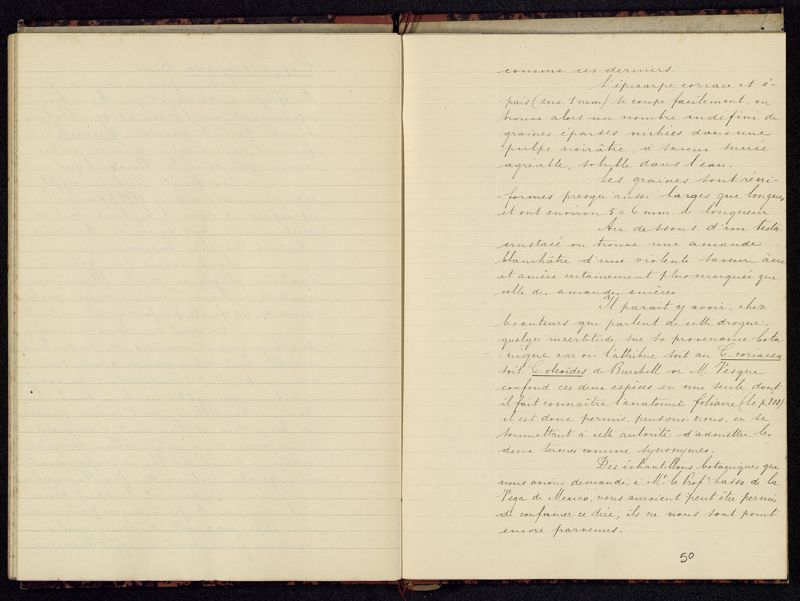 comme ces derniers.
L'épicarpe coriace et é-
pais (env. 1 mm) se coupe facilement, on
trouve alors un nombre indéfini de
graines éparses nichées dans une
pulpe noirâtre, à saveur sucrée
agréable, soluble dans l'eau.
Les graines sont réni-
formes presqu'aussi larges que longues
et ont environ 5 à 6 mm. de longueur
Au dessous d'un testa
crustacé on trouve une amande
blanchâtre d'une violente saveur âcre
et amère certainement plus marquée que
celle des amandes amères
Il parait y avoir, chez
les auteurs qui parlent de cette drogue,
quelque incertitude sur sa provenance bota-
nique car on l'attribue soit au C. coriacea
soit C. oleoides de Burchell or M. Vesque
confond ces deux espèces en une seule dont
il fait connaître l'anatomie foliaire (loc. p. 100)
il est donc permis, pensons nous, en se
soumettant à cette autorité d'admettre les
deux termes comme synonymes.
Des échantillons botaniques que
nous avons demandé, à Mr. le Profr. Lasso de la
Vega de Mexico, nous auraient peut être permis
de confirmer ce dire, ils ne nous sont point
encore parvenus.
50